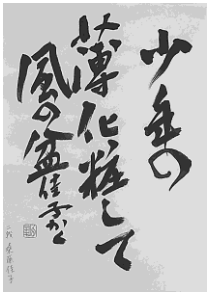 少年の
薄化粧して
風の盆 佳子かく